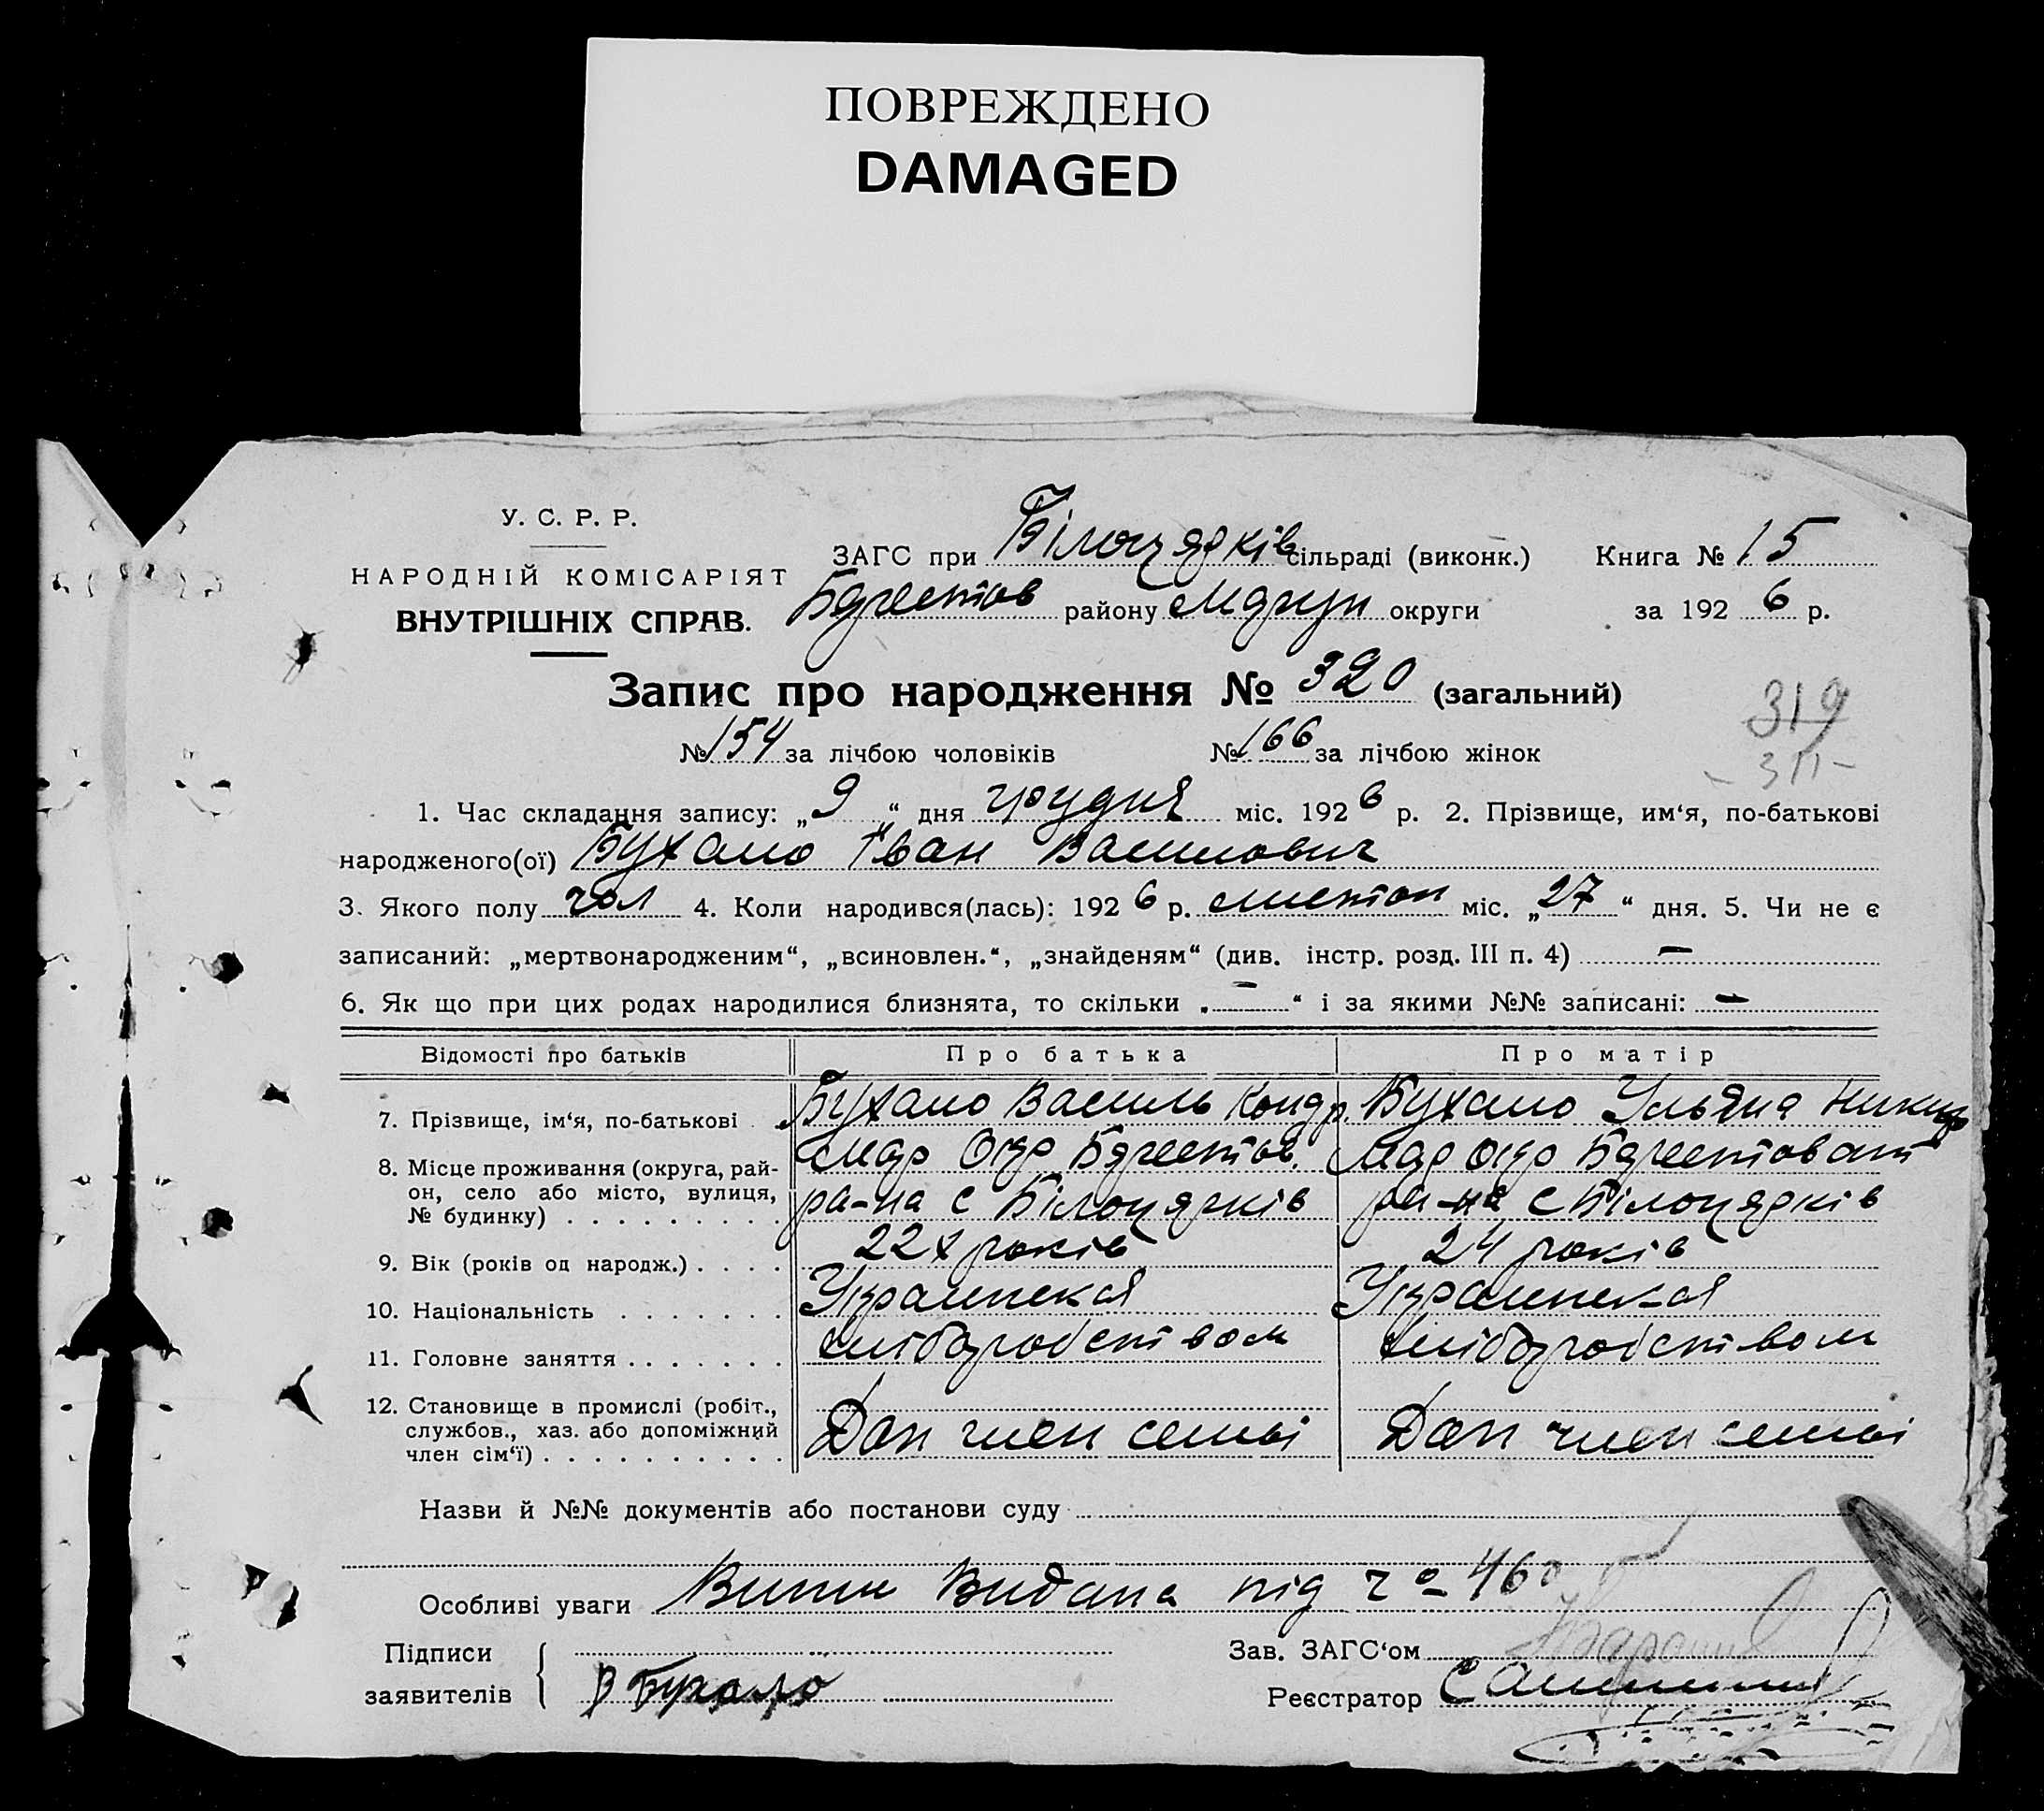 ПОВРЕЖДЕНО
DAMAGED
У. С. Р. Р.
НАРОДНІЙ КОМІСАРІЯТ
ВНУТРІШНІХ СПРАВ.
ЗАГС при Білоцерків сільраді (виконк.) Книга № 15
району округи за 1926 р.
Запис про народження № 320 (загальний)
319
№ 154 за лічбою чоловіків № 166 за лічбою жінок
1. Час складання запису: „9“ дня грудня міс. 1926 р. 2. Прізвище, им‘я, по-батькові
народженого(ої) Бухало Іван Василович
3. Якого полу чол 4. Коли народився(лась): 1926 р. листоп міс. „27“ дня. 5. Чи не є
записаний: „мертвонародженим“, „всиновлен.“, „знайденям“ (див. інстр. розд. III п. 4) —
6. Як що при цих родах народилися близнята, то скільки „—“ і за якими №№ записані: —
Відомості про батьків Про батька Про матір
7. Прізвище, ім‘я, по-батькові Бухало Василь Кондр. Бухало Ульяна
8. Місце проживання (округа, рай-
он, село або місто, вулиця,
№ будинку) ра-на с Білоцерків ра-на с Білоцерків
9. Вік (років од народж.) 22 років 24 років
10. Національність Украинская Украинская
11. Головне заняття хлібороботством хлібороботством
12. Становище в промислі (робіт.,
службов., хаз. або допоміжний
член сім‘ї) Доп член семьі Доп член семьі
Назви й №№ документів або постанови суду
Особливі уваги Видана під 460
Підписи
заявителів В Бухало
Зав. ЗАГС‘ом
Реєстратор